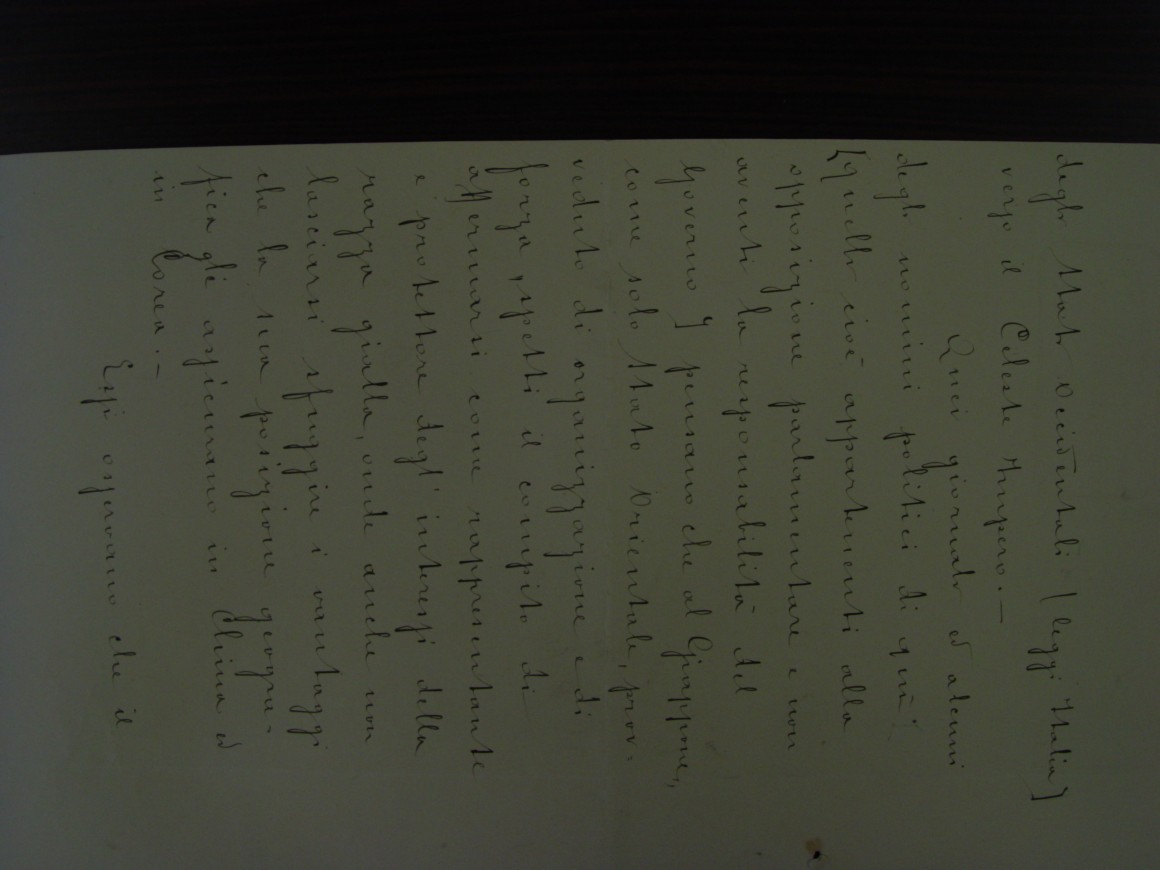 degli Stati Occidentali [leggi Italia]
verso il Celeste Impero.—
Quei giornali ed alcuni
degli uomini politici di quì
[quelli cioè appartenenti alla
opposizione parlamentare e non
aventi la responsabilità del
Governo] pensano che al Giappone,
come solo Stato Orientale, prov-
veduto di organizzazione e di
forza, spetti il compito di
affermarsi come rappresentante
e protettore degl'interessi della
razza gialla, onde anche non
lasciarsi sfuggire i vantaggi
che la sua posizione geogra-
fica gli assicurano in China ed
in Corea.—
Essi osservano che il